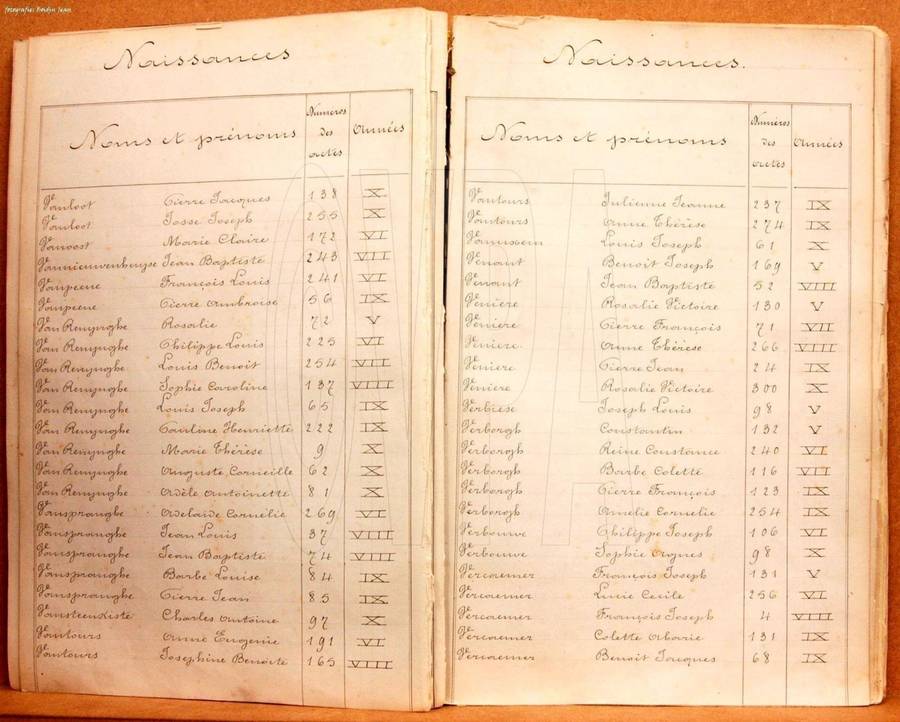 fotografies Boidyn Jean
Naissances
Noms et prénoms Numéros des actes Années
Vanloot Pierre Jacques 138 X
Vanloot Josse Joseph 255 X
Vanoost Marie Claire 172 VI
Vannieuwenhuyse Jean Baptiste 243 VII
Vanpeene François Louis 241 VI
Vanpeene Pierre Ambroise 56 IX
Van Renynghe Rosalie 72 V
Van Renynghe Philippe Louis 225 VI
Van Renynghe Louis Benoit 254 VII
Van Renynghe Sophie Caroline 137 VIII
Van Renynghe Louis Joseph 65 IX
Van Renynghe Pauline Henriette 222 IX
Van Renynghe Marie Thérèse 9 X
Van Renynghe Auguste Corneille 62 X
Van Renynghe Adèle Antoinette 81 X
Vanspranghe Adelaide Cornélie 269 VI
Vanspranghe Jean Louis 37 VIII
Vanspranghe Jean Baptiste 74 VIII
Vanspranghe Barbe Louise 84 IX
Vanspranghe Pierre Jean 85 IX
Vansteenkiste Charles Antoine 97 X
Vantours Anne Eugenie 191 VI
Vantours Josephine Benoite 165 VIII
Naissances.
Noms et prénoms Numéros des actes Années
Vantours Julienne Jeanne 237 IX
Vantours Anne Thérèse 274 IX
Louis Joseph 61 X
Venant Benoit Joseph 169 V
Venant Jean Baptiste 52 VIII
Venière Rosalie Victoire 130 V
Venière Pierre François 71 VII
Venière Anne Thérèse 266 VIII
Venière Pierre Jean 24 IX
Venière Rosalie Victoire 300 X
Verbiese Joseph Louis 98 V
Verborgh Constantin 132 V
Verborgh Reine Constance 240 VI
Verborgh Barbe Colette 116 VII
Verborgh Pierre François 123 IX
Verborgh Amélie Cornélie 254 IX
Verbouwe Philippe Joseph 106 VI
Verbouwe Sophie Agnes 98 X
Vercaemer François Joseph 131 V
Vercaemer Lucie Cecile 256 VI
Vercaemer François Joseph 4 VIII
Vercaemer Colette 131 IX
Vercaemer Benoit Jacques 68 IX